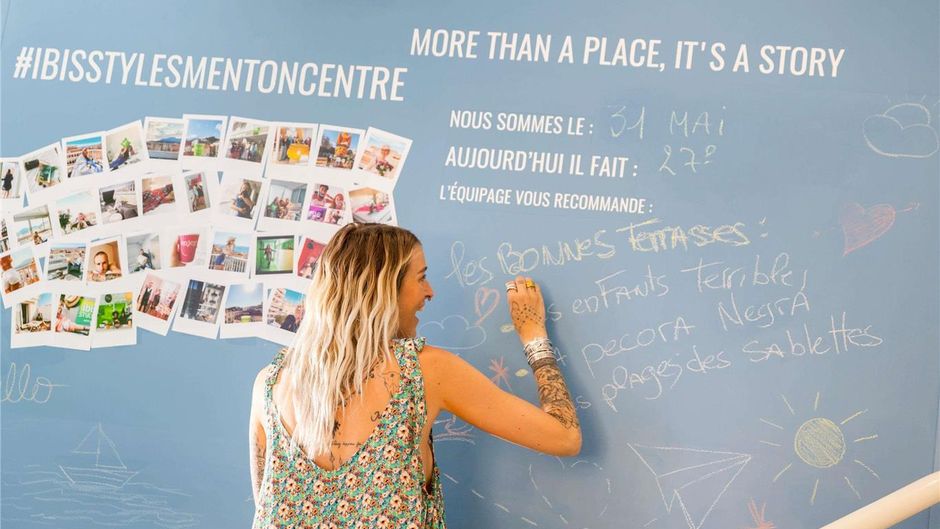 #IBISSTYLESMENTONCENTRE
MORE THAN A PLACE, IT'S A STORY
NOUS SOMMES LE : 31 MAI
AUJOURD'HUI IL FAIT : 27°
L'ÉQUIPAGE VOUS RECOMMANDE :
les BONNES TERRASSES :
enfants Terrible,
pecora Negra
plages des Sablettes